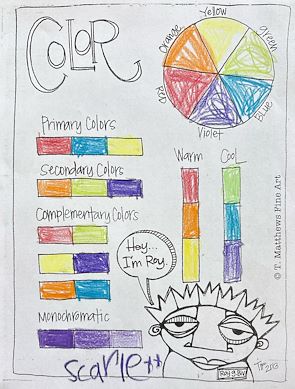 COLOR
Yellow
Orange
green
Red
Blue
Violet
Primary Colors
Secondary Colors
Warm
Cool
Complementary Colors
Hey...
I'm Roy.
Monochromatic
Roy g. Biv
scarlett
© T. Matthews Fine Art